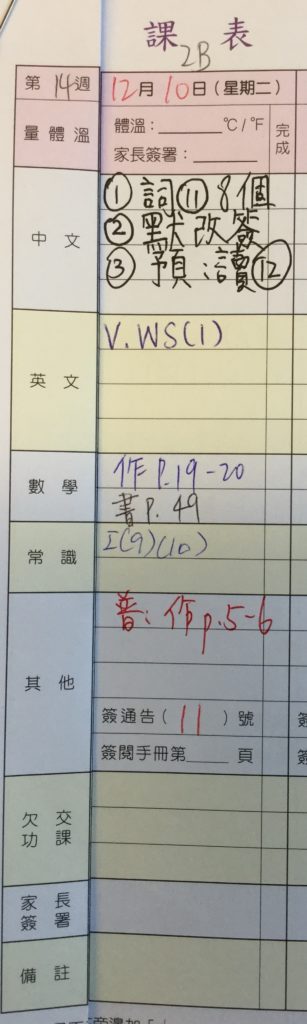 課 表
2B
第 14 週 12月 10日(星期二)
量 體 溫 體溫：______ °C/°F 完成
家長簽署：______
中 文
① 詞⑪ 8個
② 默改簽
③ 預：讀⑫
英 文
V.WS(1)
數 學
作 P.19-20
書 P. 49
常 識
I(9)(10)
其 他
普：作 p.5-6
簽通告( 11 )號
簽閱手冊第____頁
欠 交 功 課
家 長 簽 署
備 註